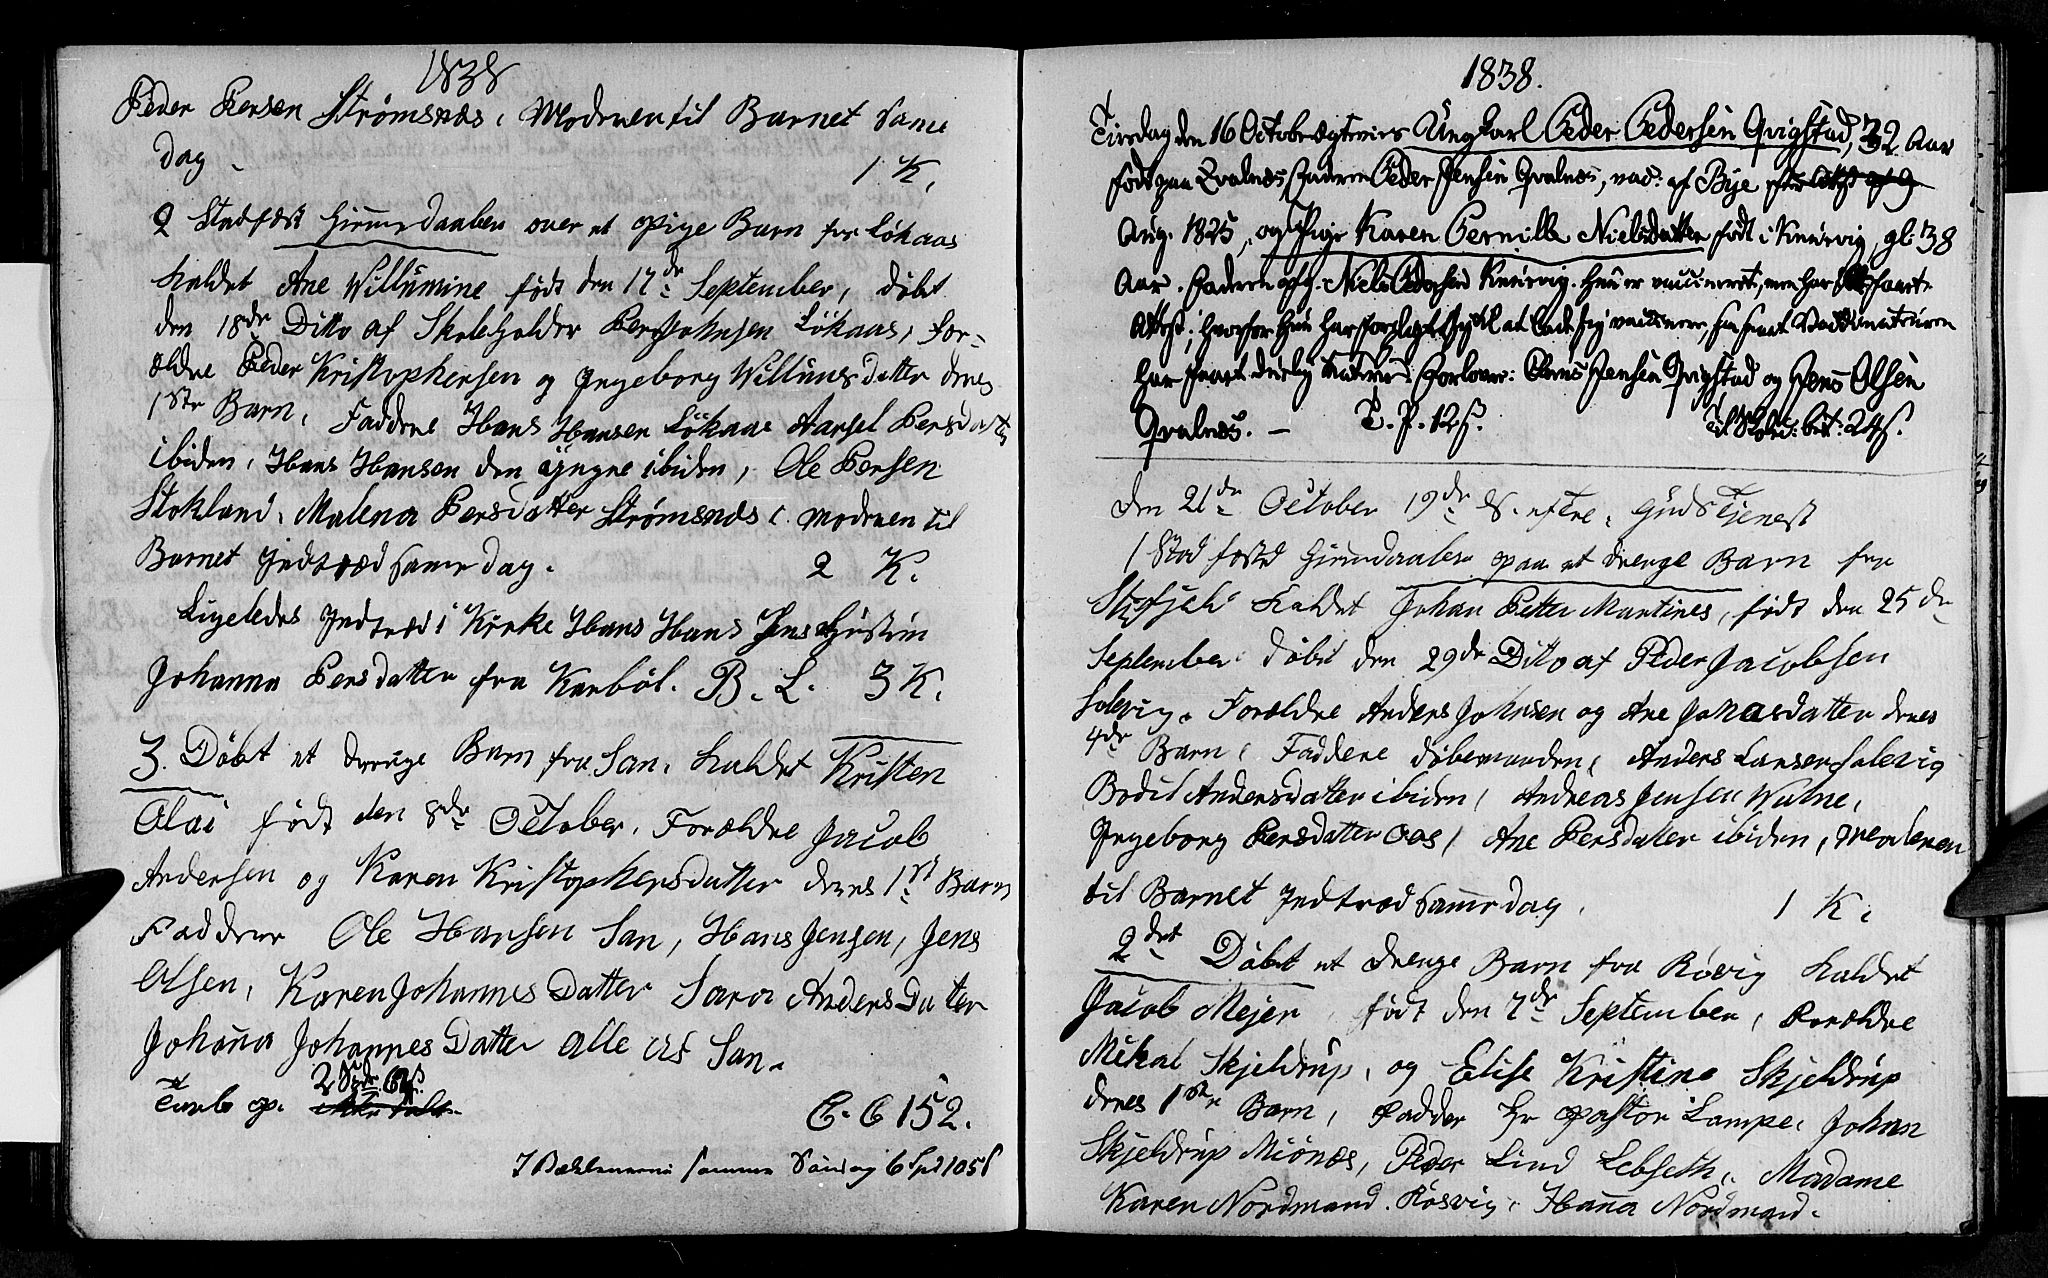 1838
Peder Persen Strømsnæs, Moderen til Barnet Same
dag 1 K.
2 Stadfæst Hiemedaaben over et Pige Barn fra Løkaas
kaldet Ane Willumine født den 17de September, døbt
den 18de Ditto af Skoleholder Per Johnsen Løkaas, For-
ældre Peder Kristophersen og Ingeborg Willumsdatter deres
1ste Barn, Faddere Hans Hansen Løkaas Persdatter
ibiden, Hans Hansen den yngre ibiden, Ole Persen
Stokland, Malena Persdatter Strømsnæs, Moderen til
Barnet Indtræd same dag. 2 K.
Ligeledes Indtræd i Kirke Hans Hans Jens Hustru
Johanna Persdatter fra Karbøl. B. L. 3 K.
3. Døbt et drenge Barn fra San, kaldet Kristen
Olai født den 8de October, Forældre Jacob
Andersen og Karen Kristophersdatter deres 1st Barn
Faddere Ole Hansen San, Hans Jensen, Jens
Olsen, Karen Johannes Datter Sara Anders Datter
Johanna Johannes Datter alle af San.
Tavle p. 2
C. C 152.
samme Søndag 6 Spd 105 s
1838.
Tirsdag den 16 October ægtevies Ungkarl Peder Pedersen Qvigstad, 32 Aar
født paa Qvalnæs, Faderen Peder Jensen Qvalnæs, vac: af Bye
Aug. 1825, og Pige Karen Pernille Nielsdatter født i Knurvig, gl: 38
Aar. Faderen Niels Pedersen Knurvig. Hun er vaccineret, men har faaet
Attest, hvorfor hun har at lade sig vaccinere,
har Forlover: Jensen Qvigstad og Jens Olsen
Qvalnæs. — T. P. 12 s. bet: 24 s.
Den 21de October 19de S. eftre, Guds Tjenest
1 Stadfæsted Hiemedaaben paa et drenge Barn fra
kaldet Johan Petter Martines, født den 25de
September døbt den 29de Ditto af Peder Jacobsen
Solevig. Forældre Anders Johnsen og Ane Johasdatter deres
4de Barn, Faddere døbemanden, Anders Larsen Solevig
Bodil Andersdatter ibiden, Andreas Jensen Valne,
Ingeborg Persdatter Oas, Ane Persdatter ibiden, Moderen
til Barnet Indtræd same dag. 1 K.
2det Døbt et drenge Barn fra Røvig kaldet
Jacob Mejer, født den 7de September, Forældre
Mikal Skjeldrup, og Elise Kristine Skjeldrup
deres 1ste Barn, Fadder Hr Pastor Lampe, Johan
Skjeldrup Miønæs, Peder Lind Lebseth, Madame
Karen Nordmand. Røsvig, Hanna Nordmand.